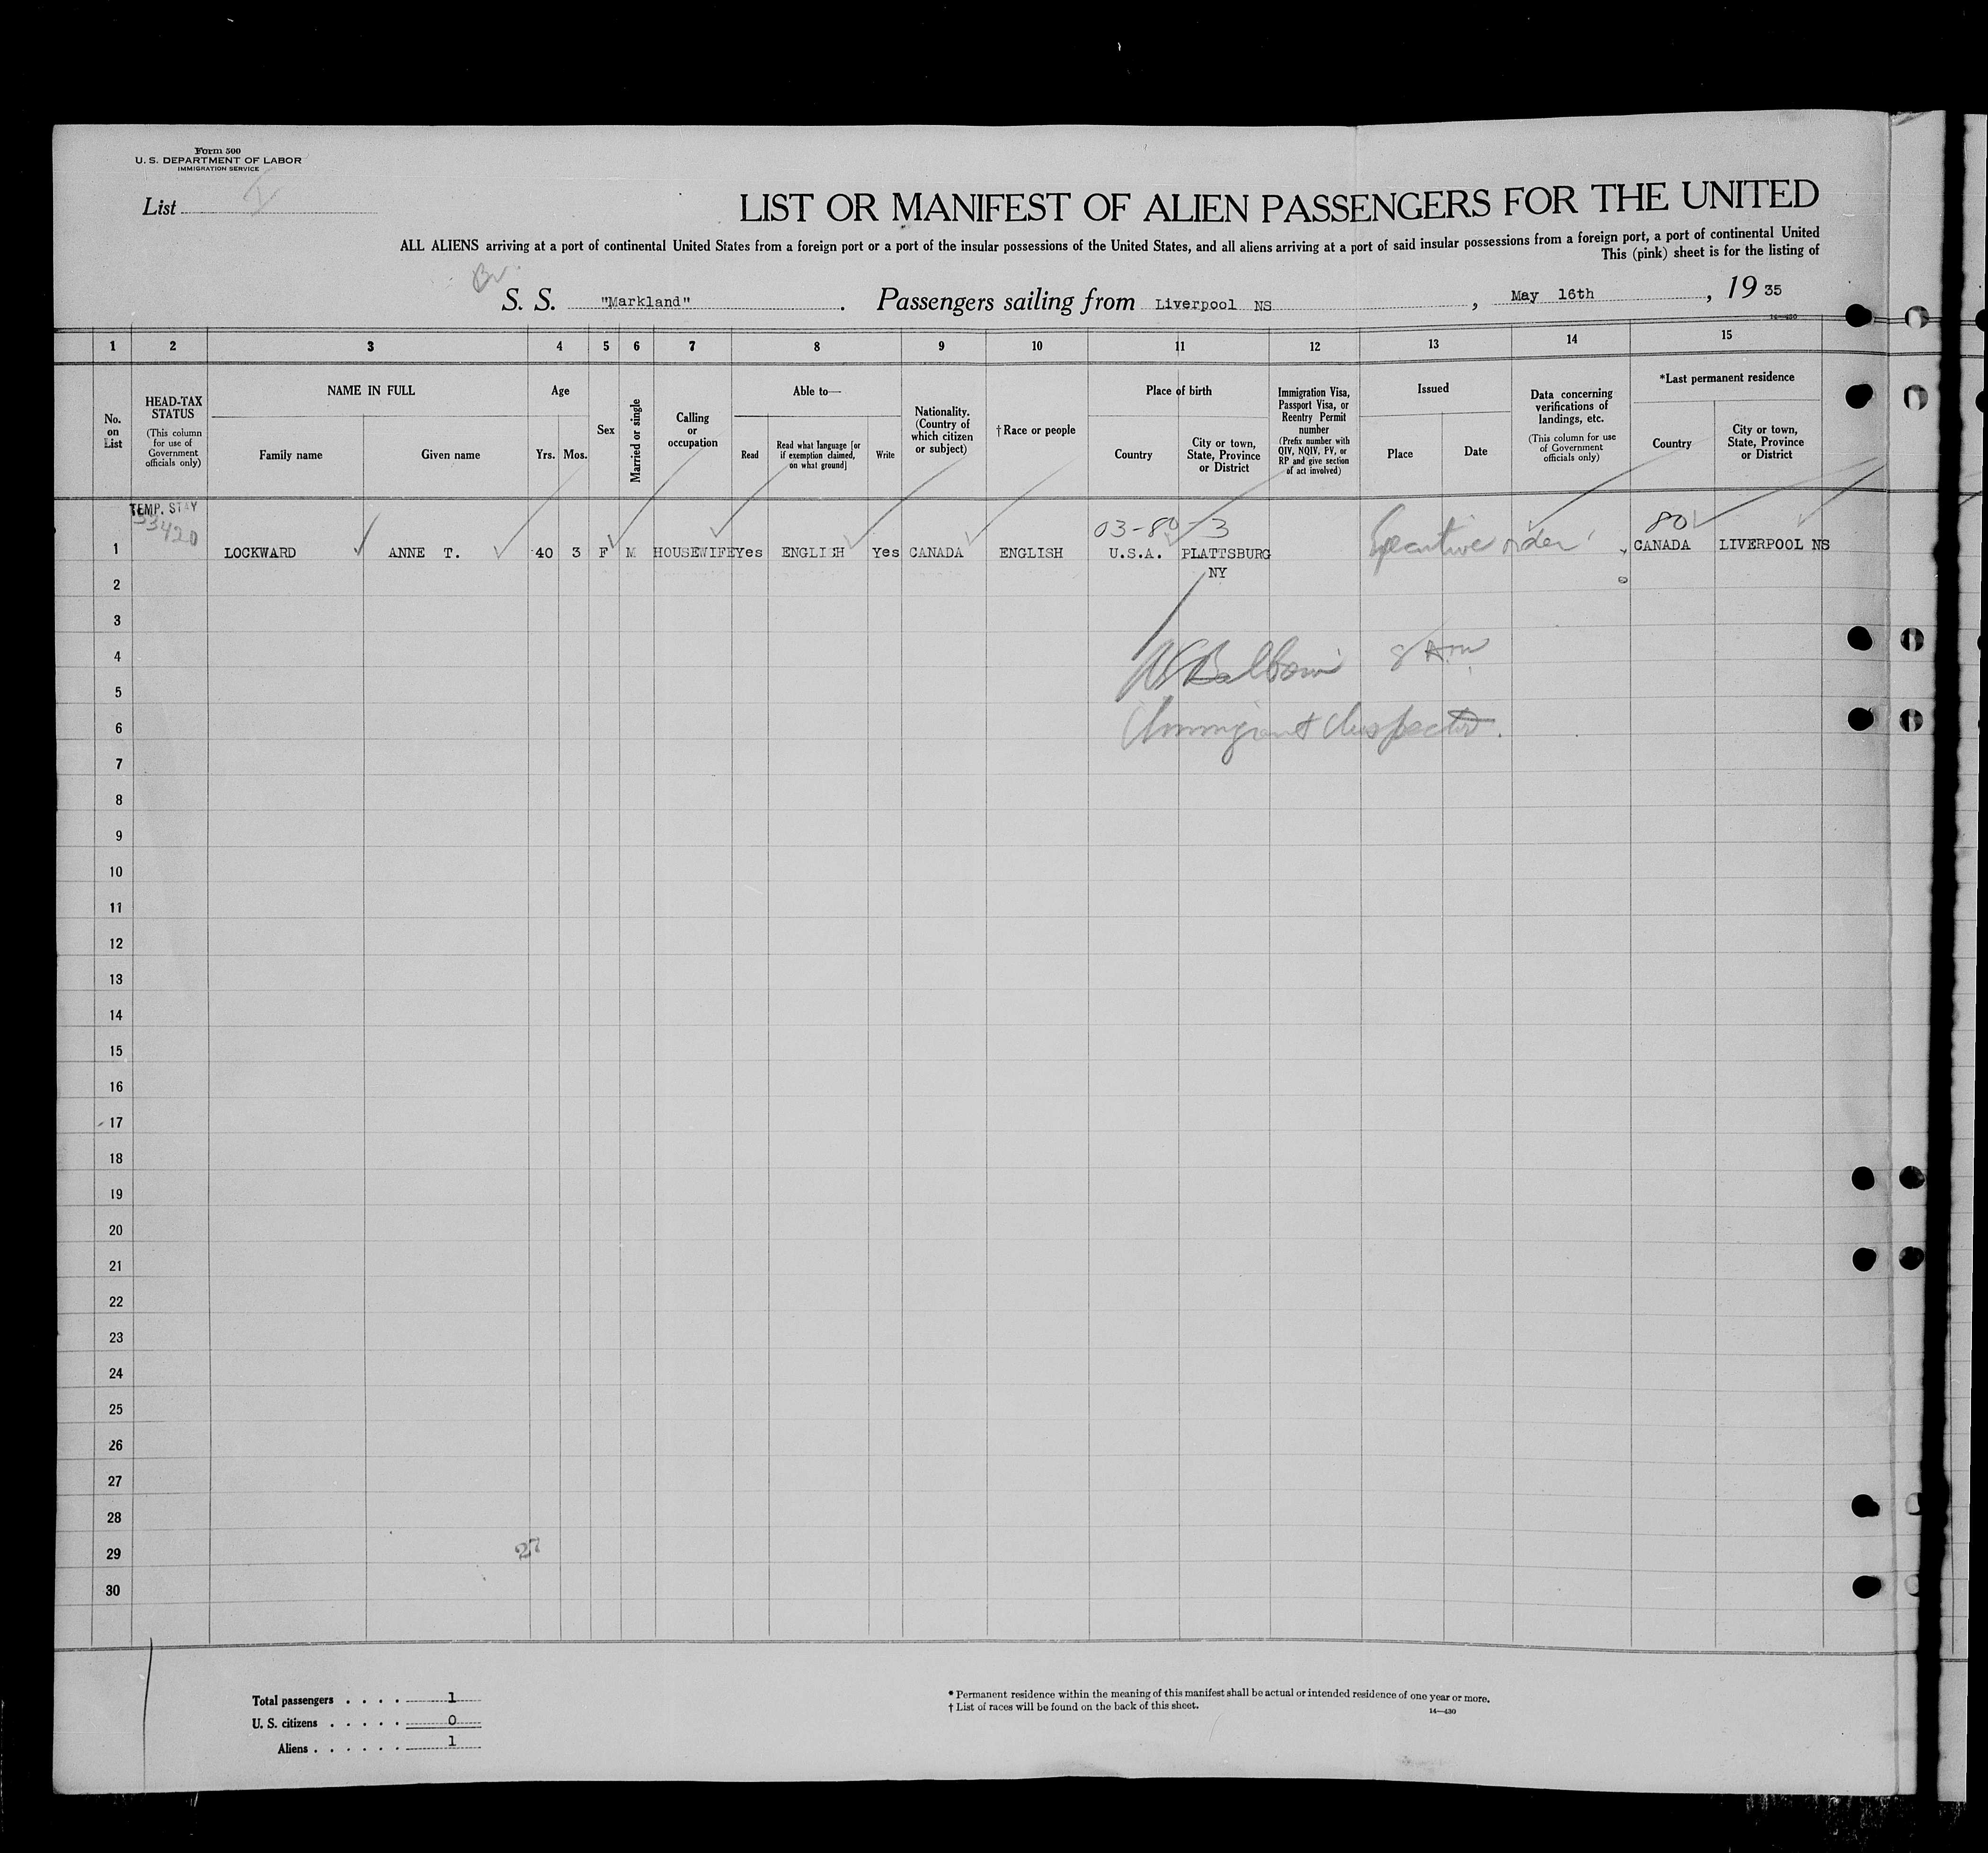 Form 500
U. S. DEPARTMENT OF LABOR
IMMIGRATION SERVICE
List I
LIST OR MANIFEST OF ALIEN PASSENGERS FOR THE UNITED
ALL ALIENS arriving at a port of continental United States from a foreign port or a port of the insular possessions of the United States, and all aliens arriving at a port of said insular possessions from a foreign port, a port of continental United
This (pink) sheet is for the listing of
Br.
S. S. "Markland". Passengers sailing from Liverpool NS, May 16th, 19 35
14—430
1 2 3 4 5 6 7 8 9 10 11 12 13 14 15
No. on List
HEAD-TAX STATUS
(This column for use of Government officials only)
NAME IN FULL
Family name
Given name
Age
Yrs.
Mos.
Sex
Married or single
Calling or occupation
Able to—
Read
Read what language [or if exemption claimed, on what ground]
Write
Nationality. (Country of which citizen or subject)
†Race or people
Place of birth
Country
City or town, State, Province or District
Immigration Visa, Passport Visa, or Reentry Permit number
(Prefix number with QIV, NQIV, PV, or RP and give section of act involved)
Issued
Place
Date
Data concerning verifications of landings, etc.
(This column for use of Government officials only)
*Last permanent residence
Country
City or town, State, Province or District
TEMP. STAY
53420
03-80-3
80
1 LOCKWARD ANNE T. 40 3 F M HOUSEWIFE Yes ENGLISH Yes CANADA ENGLISH U.S.A. PLATTSBURG Executive order CANADA LIVERPOOL NS
NY
2
3
4
Baldwin
5
6
Immigrant Inspector.
7
8
9
10
11
12
13
14
15
16
17
18
19
20
21
22
23
24
25
26
27
28
29
27
30
Total passengers . . . . 1
U. S. citizens . . . . . 0
Aliens . . . . . . 1
* Permanent residence within the meaning of this manifest shall be actual or intended residence of one year or more.
† List of races will be found on the back of this sheet.
14—430